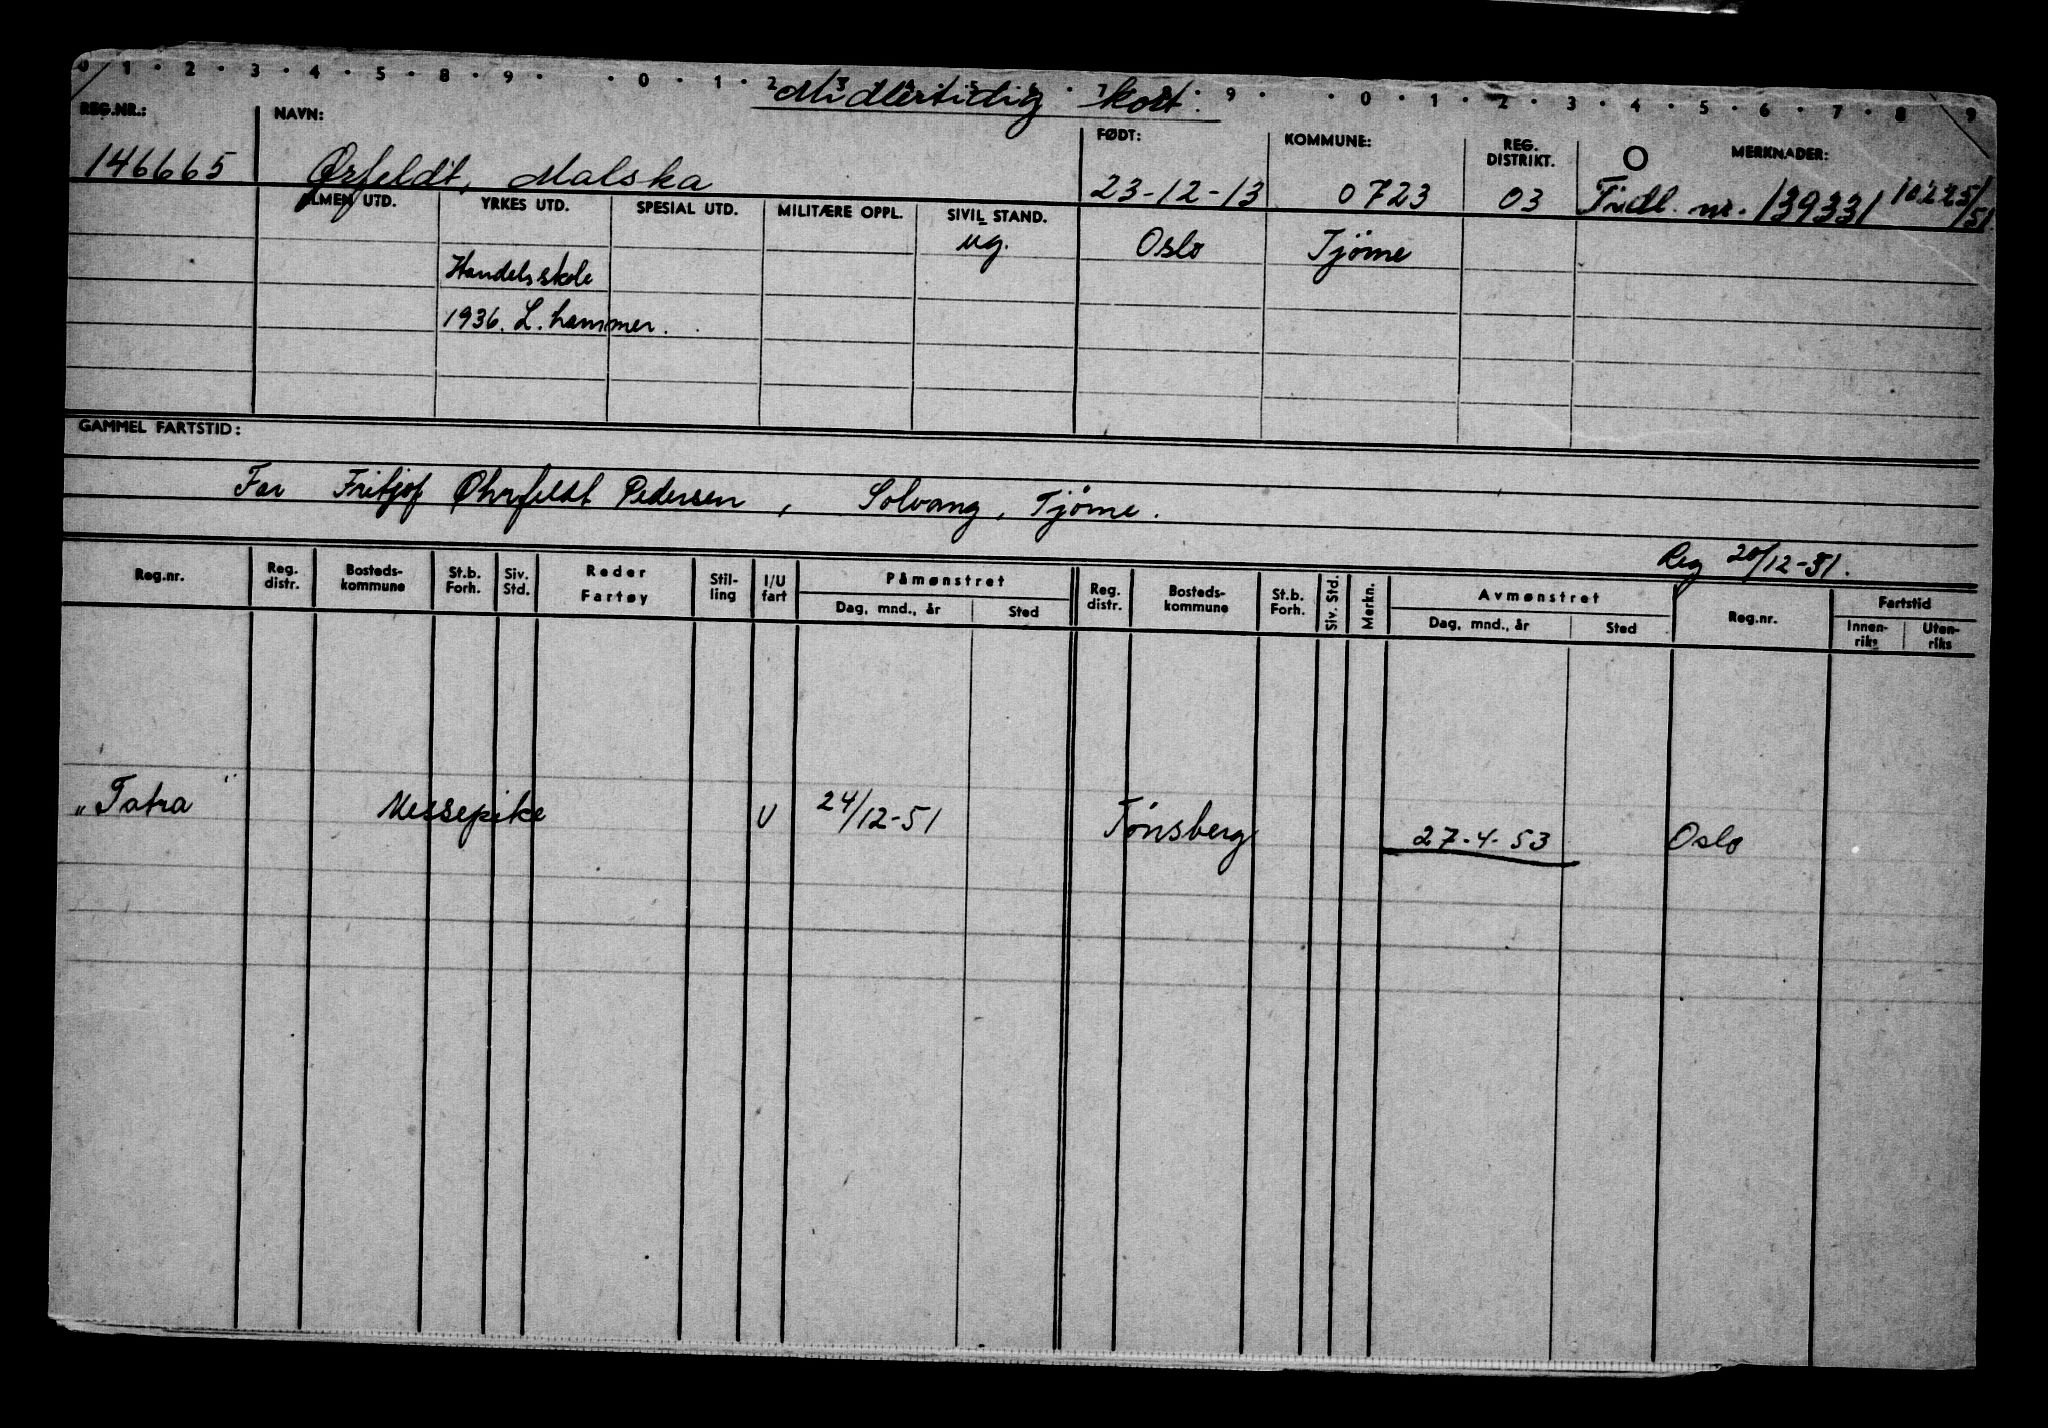 0 1 · 2 · 3 · 4 · 5 · 8 · 9 · · 0 · 1 · 2 · 3 · · 5 · · 7 · · 9 · · 0 · 1 · 2 · 3 · 4 · 5 · 6 · 7 · 8 9
Midlertidig kort.
REG.NR.: NAVN: FØDT: KOMMUNE: REG. DISTRIKT. MERKNADER:
146665 Ørfeldt, Malska 23-12-13 0723 03 Fridl. nr. 13933/ 10225/51
ALMEN UTD. YRKES UTD. SPESIAL UTD. MILITÆRE OPPL. SIVIL STAND.
ug. Oslo Tjöme
Handelsskole
1936. L.hammer.
GAMMEL FARTSTID:
Far Fritjof Øhrfeldt Pedersen, Solvang, Tjöme.
Reg 20/12-51.
Reg.nr. Reg. distr. Bosteds-kommune St.b. Forh. Siv. Std. Reder Fartøy Stil-ling I/U fart Påmønstret Reg. distr. Bosteds-kommune St.b. Forh. Siv. Std. Merkn. Avmønstret Reg.nr. Fartstid
Dag, mnd., år Sted Dag, mnd., år Sted Innen-riks Uten-riks
"Tatra" Messepike U 24/12-51 Tönsberg 27-4-53 Oslo